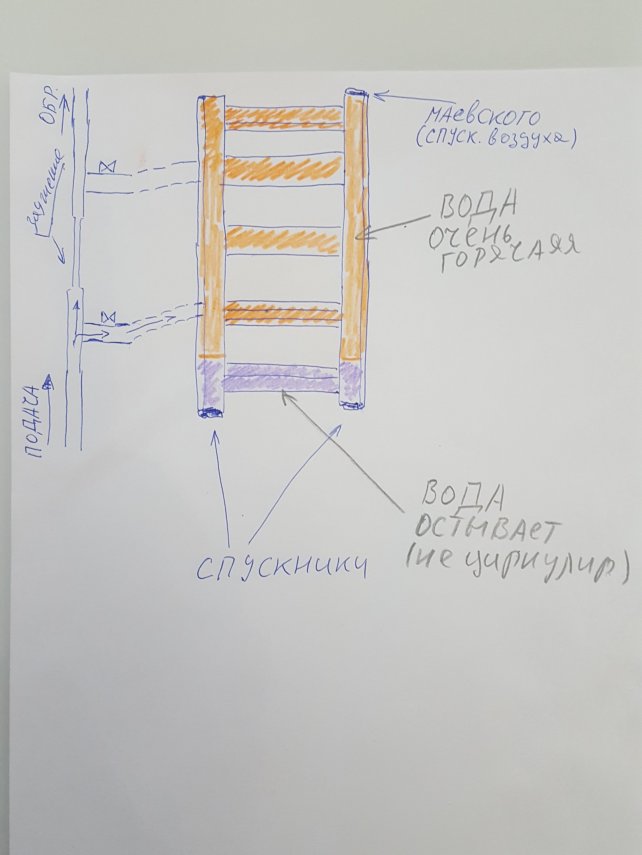 ОБР.
заужение
ПОДАЧА
МАЕВСКОГО
(СПУСК. ВОЗДУХА)
ВОДА
ОЧЕНЬ
ГОРЯЧАЯ
ВОДА
ОСТЫВАЕТ
(не циркулир)
СПУСКНИКИ